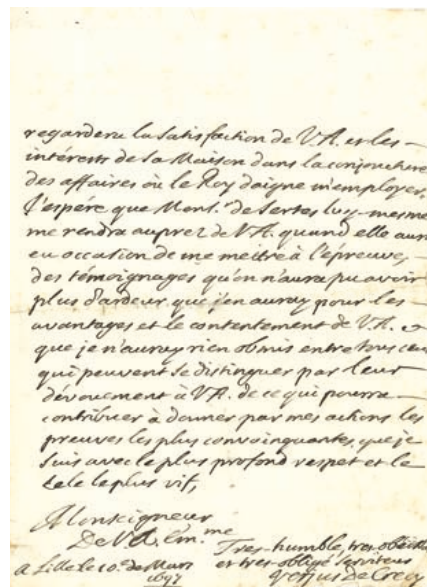 regardera la satisfaction de V.A. et les
interests de sa Maison dans la conjoncture
des affaires où le Roy daigne m'employer.
J'espére que Mons.r de Sertes luy-mesme
me rendra auprez de V.A. quand elle aura
eu occasion de me mettre à l'épreuve,
des témoignages qu'on n'aura pu avoir
plus d'ardeur que j'en auray pour les
avantages et le contentement de V.A. et
que je n'auray rien obmis entre tous ceux
qui peuvent se distinguer par leur
dévouement à V.A. de ce qui pourra
contribuer à donner par mes actions les
preuves les plus convainquantes que je
suis avec le plus profond respet et le
zele le plus vif,
Monseigneur
De V.A. Em.me
Tres-humble, tres-obéiss.t
et tres-obligé serviteur
Verjus De Crecy
A Lille le 10.e de Mars
1697